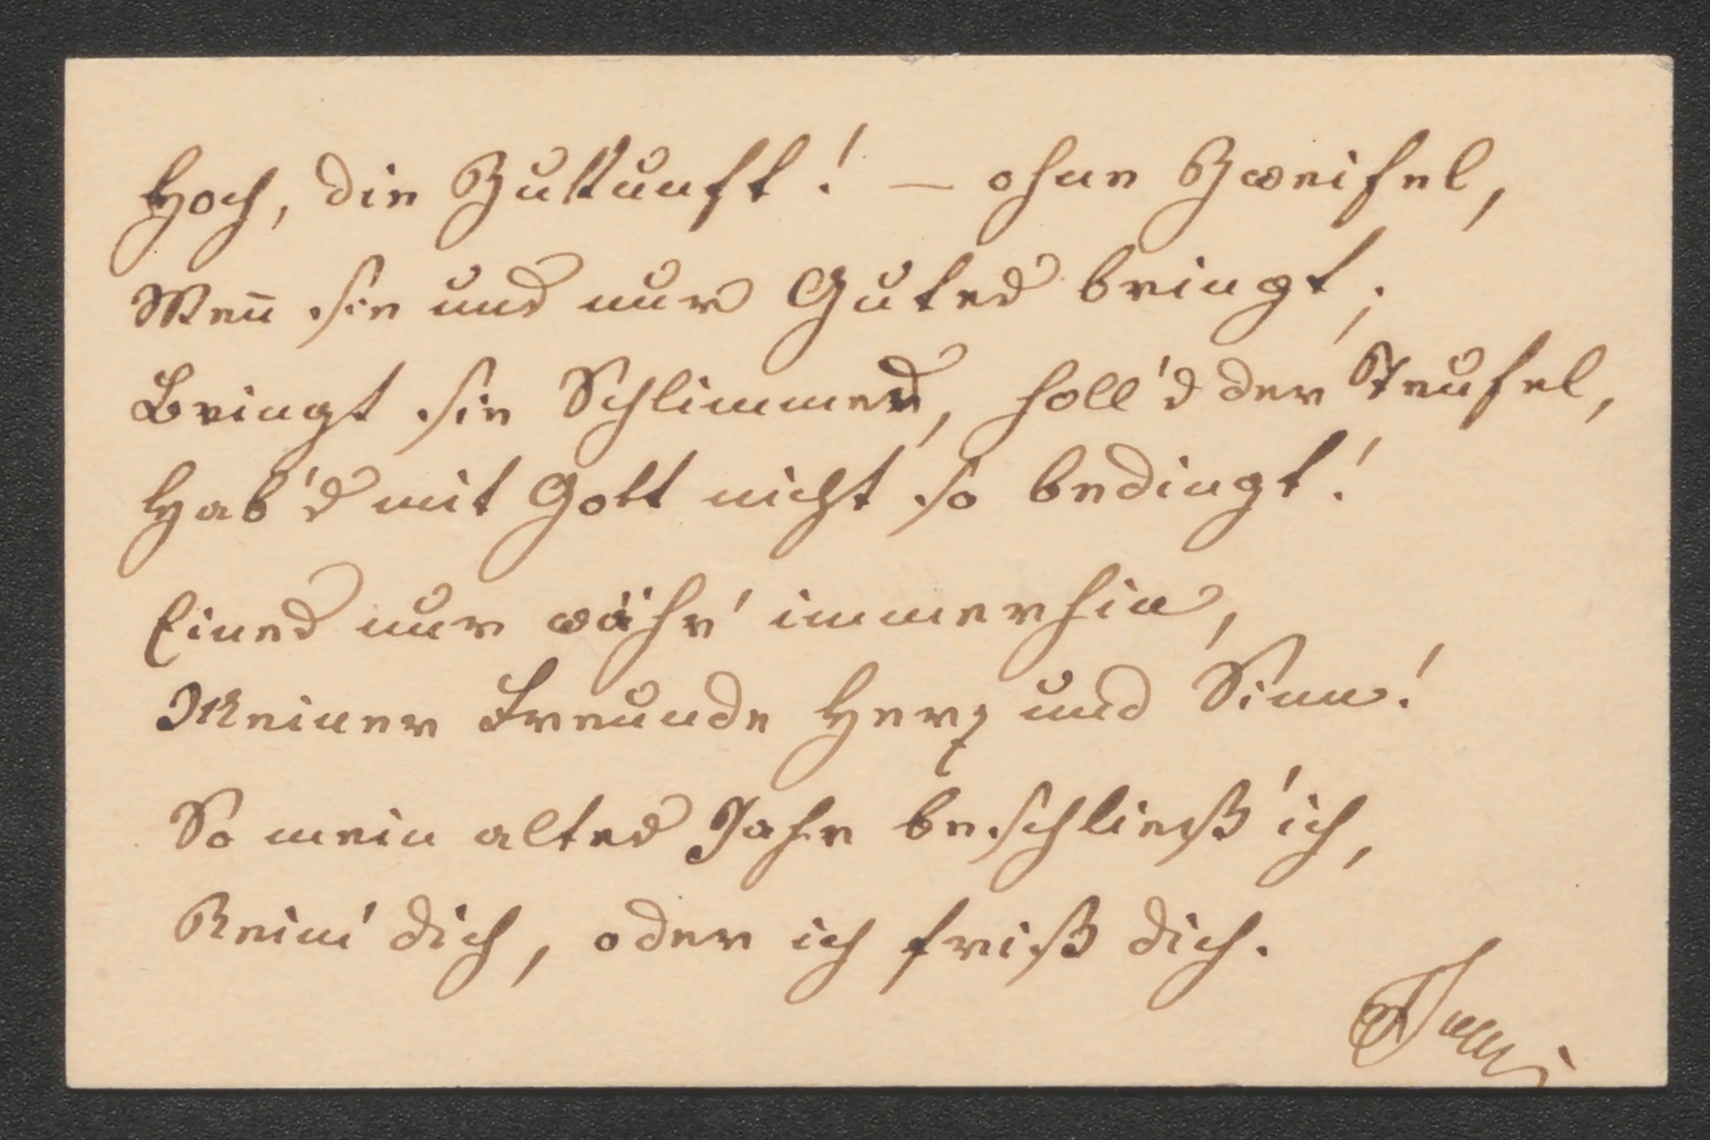 Hoch, die Zukunft! — ohne Zweifel,
Wen̄ sie uns nur Gutes bringt;
Bringt sie Schlimmes, holl's der Teufel,
Hab's mit Gott nicht so bedingt!
Eines nur währ' immerhin,
Meiner Freunde Herz und Sinn!
So mein altes Jahr beschließ' ich,
Reim' dich, oder ich friß dich.